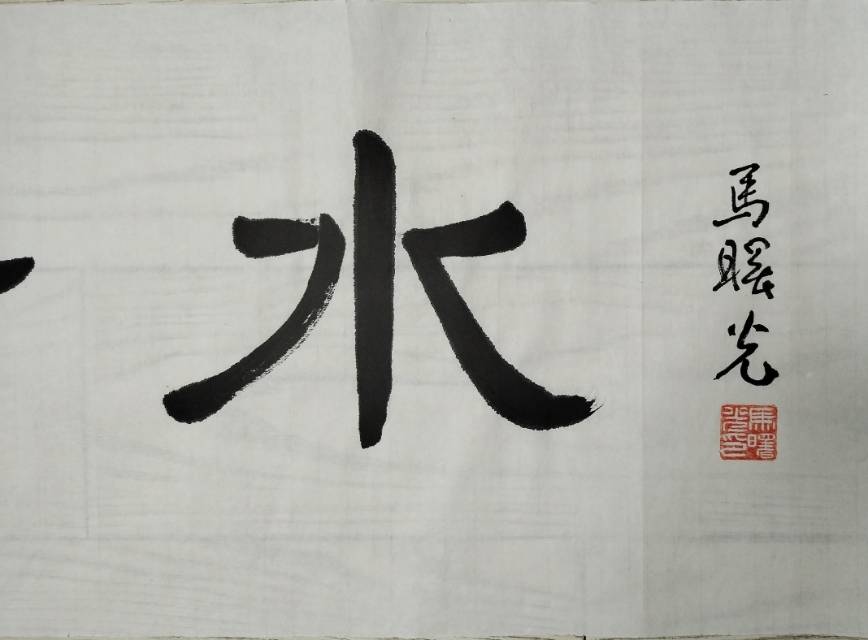 水
馬曙光
馬曙光印